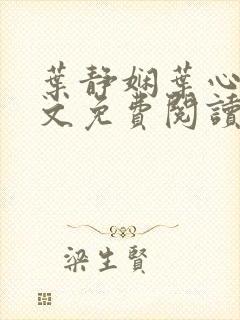 葉靜嫻葉心
文免費閱讀
梁生賢